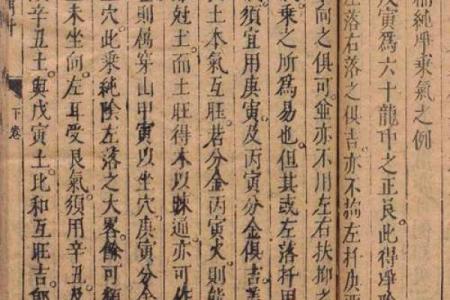 純淨乘氣之例
戊寅為六十龍中之正艮此得淨陰
左落右落之俱吉亦不拘左扞
子向之俱可並亦不用左右扶抑之
乘之所為易也但其或左落扞用
須宜用庚寅及丙寅分金俱吉蓋
土本氣互旺若分金丙寅火則能
土而土旺得木以疎通亦可
是則偶穿山甲寅以坐穴庚寅分金
穴此乘純陰左落之大畧餘可類
未坐向左耳受艮氣須用辛丑及
辛丑土與戊寅土比和互旺吉
下卷